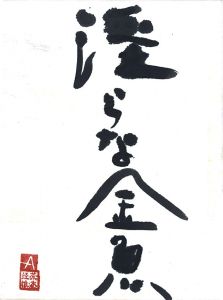 淫らな金魚
A